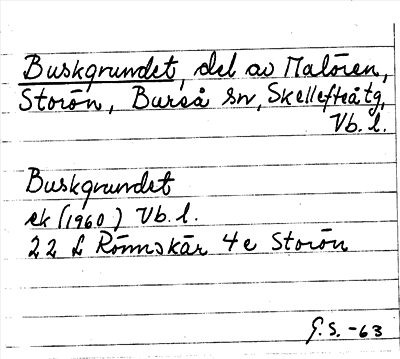 Buskgrundet, del av Malören,
Storön, Bureå sn, Skellefteå tg,
Vb. l.
Buskgrundet
ek (1960) Vb. l.
22 L Rönnskär 4e Storön
G.S. -63